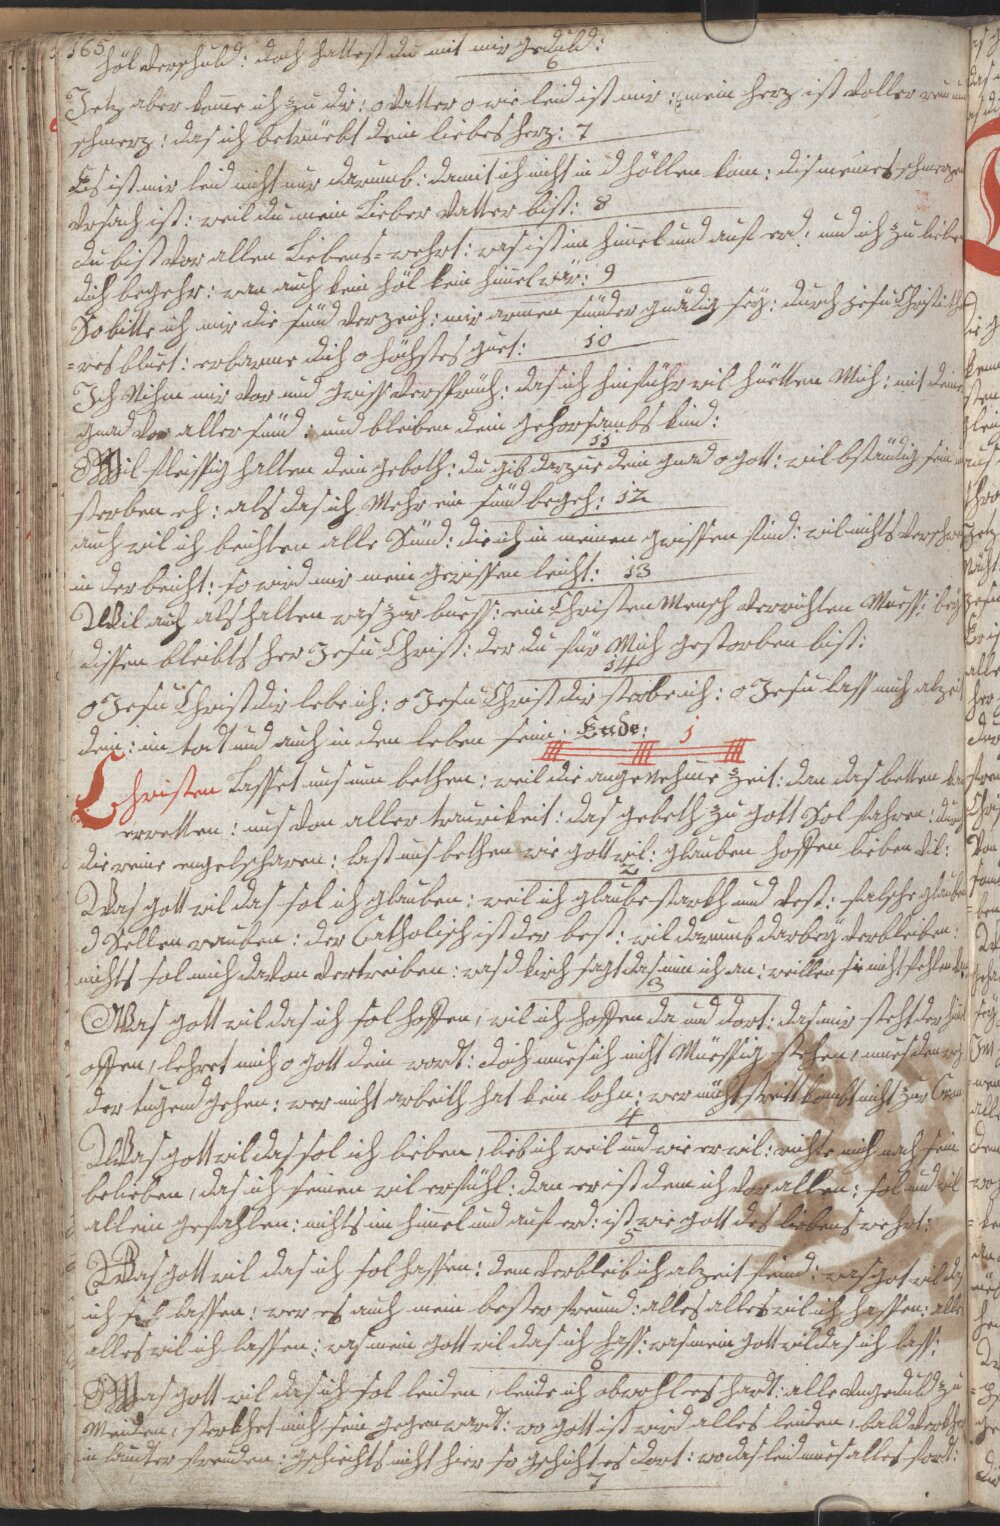 165
höl verschuld: doch hattest du mit mir geduld:
6
Jetz aber kome ich zu dir: o Vatter o wie leid ist mir: mein herz ist voller reüe und
schmerz: das ich betrüebt dein liebes herz: 7
Es ist mir leid nicht nur darumb: damit ich nicht in d höllen kom: dis meines schmerzen
Vrsach ist: weil du mein Lieber Vatter bist: 8
du bist vor allen Liebens=wehrt: was ist im himel und auf erd: und ich zu lieben
dich begehr: wan auch kein höl kein himel wär: 9
So bitte ich mir die sünd verzeich: mir armen sünder gnädig seÿ: durch jesu Christi
=res bluet: erbarme dich o höchstes guet: 10
Ich Nihm mir vor und gwiss versprüch: das ich hinführ wil hüetten Mich: mit deiner
gnad vor aller sünd: und bleiben dein gehorsambs kind:
11
Wil fleissig halten dein geboth: du gib darzue dein gnad o gott: wil bständig sein
sterben eh: als das ich Mehr ein sünd begeh: 12
auch wil ich beichten alle Sünd: die ich in meinen gwissen find: wil nichts
in der beicht: so wird mir mein gewissen leicht: 13
Wil auch als halten was zur buess: ein Christen Mensch verrichten Muess: beÿ
dissen bleibts her Jesu Christ: der du für Mich gestorben bist:
14
o Jesu Christ dir lebe ich: o Jesu Christ dir sterbe ich: o Jesu lass mich alzeit
dein: im todt und auch in dem leben sein: Ende: 1
Christen Lasset uns nun bethen: weil die angenehme zeit: dan das betten kan
erretten: uns von aller traurikeit: das gebeth zu gott Sol fahren: durch
die reine engelscharen: last uns bethen wie gott wil: glauben hoffen lieben vil:
2
Was gott wil das sol ich glauben: weil ich glaube starkh und vest: falsche glauben
d Sellen rauben: der Catholisch ist der best: wil darumb darbeÿ verbleiben:
nichts sol mich darvon vertreiben: was d kirch sagt das nim ich an: weillen sie nicht fehlen kan
3
Was gott wil das ich sol hoffen, wil ich hoffen da und dort: das mir steht der himel
offen, lehret mich o gott dein wordt: doch mues ich nicht Müessig stehen, mues den weg
der tugend gehen: wer nicht arbeith hat kein lohn: wer nicht streitt kombt nicht zur Cron
4
Was gott wil das sol ich lieben, lieb ich weil und wie er wil: richte mich nach sein
belieben, das ich seinen wil erfühl: dan er ist dem ich vor allen: sol und wil
allein gefahlen: nichts im himel und auf erd: ist wie gott des liebens wehrt:
5
Was gott wil das ich sol hassen: dem verbleib ich alzeit feind: was got wil das
ich sol lassen: wer es auch mein bester freund: alles alles wil ich hassen: alles
alles wil ich lassen: was mein gott wil das ich hass: was mein gott wil das ich lass:
6
Was gott wil das ich sol leiden, leide ich obwohl es hardt: alle ungeduld zu
Meiden, sterkhet mich sein gegenwardt: wo gott ist wird alles leiden, bald verkehrt
in lauter freuden: gschichts nicht hier so gschicht es dort: wo das leid mues alles fort:
7